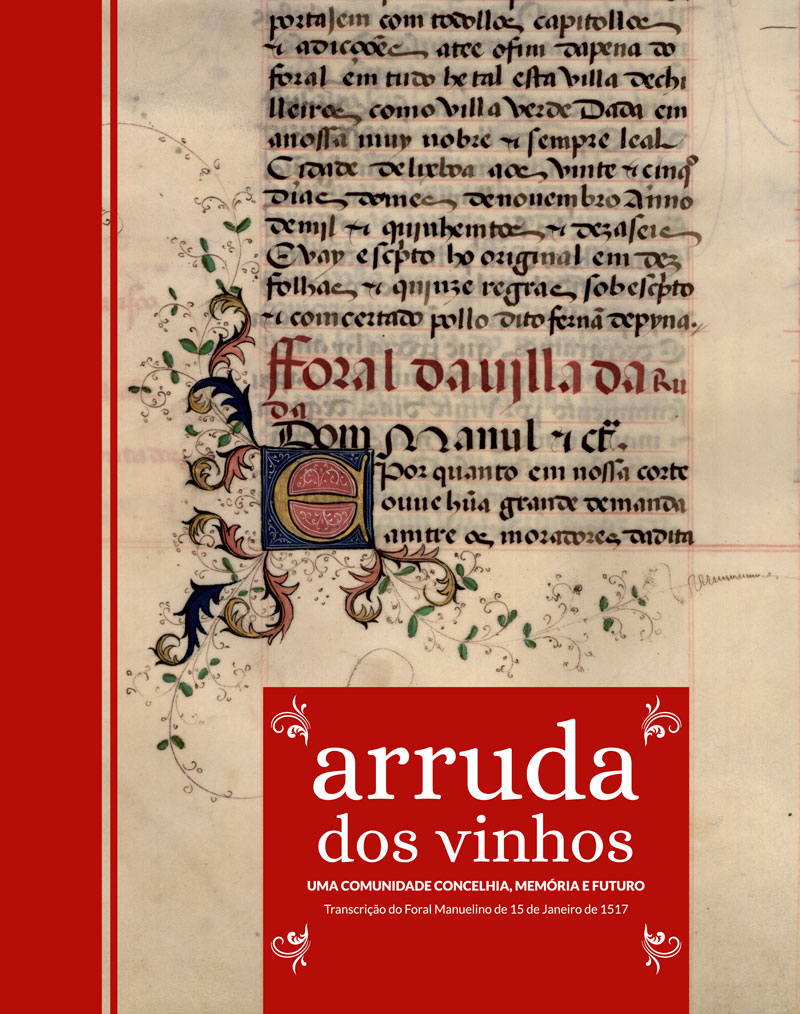 portajem com todollos capitollos
⁊ adições atee ofim dapena do
foral em tudo he tal esta villa dechi
lleiros como villa verde Dada em
anossa muy nobre ⁊ sempre leal
Cidade delixboa aos vinte ⁊ cinqͦ
dias domes denouembro Anno
demjl ⁊ quinhemtos ⁊ dezaseis
E vay escp̃to ho original em dez
folhas ⁊ quinze regras sobescp̃to
⁊ comcertado pollo dito fernã depyna.
fforal davjlla da Ru
da
Dom Manul ⁊ cᵗ̃.
E Por quanto em nossa corte
ouue hũa grande demanda
amtre os moradores dadita
arruda
dos vinhos
UMA COMUNIDADE CONCELHIA, MEMÓRIA E FUTURO
Transcrição do Foral Manuelino de 15 de Janeiro de 1517